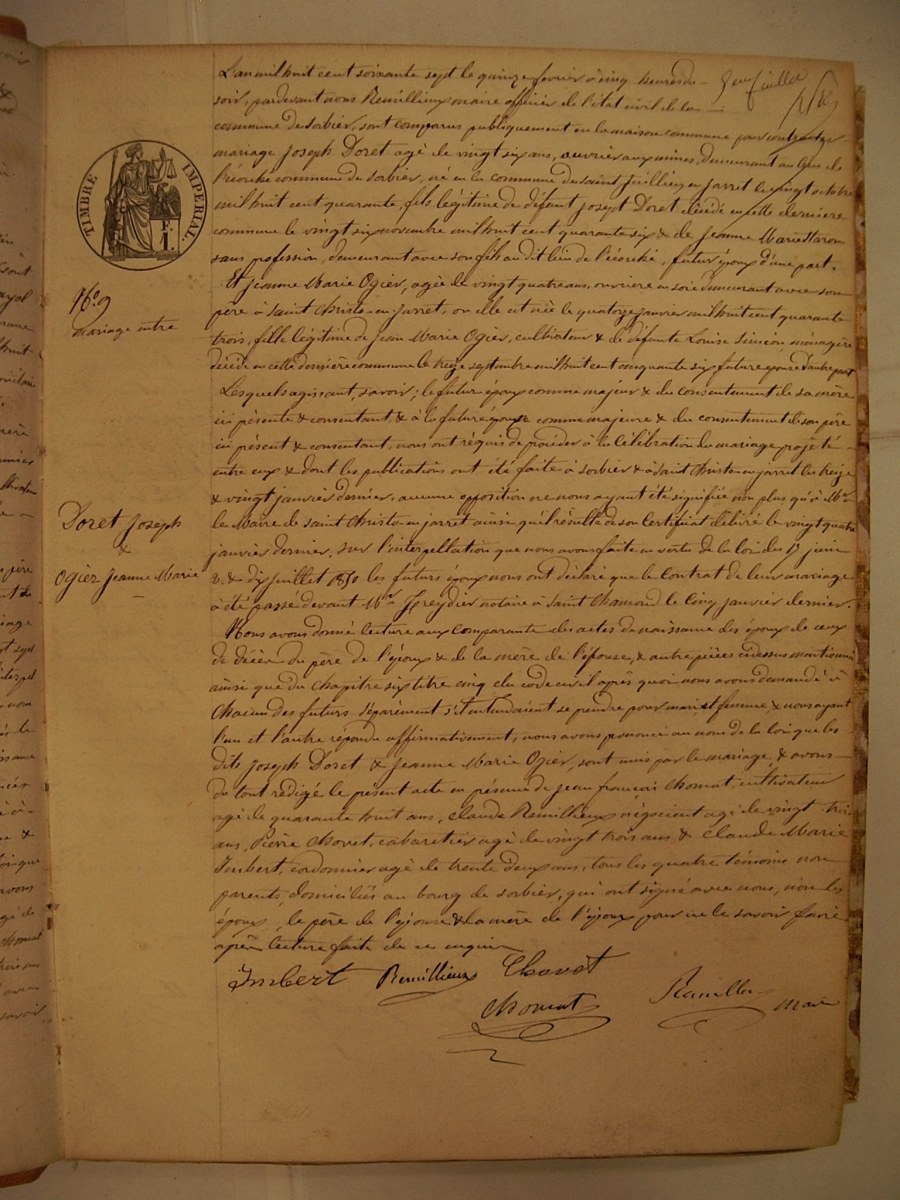 L'an mil huit cent soixante sept le quinze fevrier à cinq heures du
soir, pardevant nous Remillieux maire officier de l'état civil de la
commune de Sorbiers, sont comparus publiquement en la maison commune pour contracter
mariage Joseph Doret agé de vingt six ans, ouvrier aux mines, demeurant au lieu de
commune de Sorbier, né en la commune de Saint Jullien en Jarret le vingt octobre
mil huit cent quarante, fils légitime de défunt Joseph Doret décédé en cette derniere
commune le vingt six novembre mil huit cent quarante six & de Jeanne Marie
sans profession, demeurant avec son fils au dit lieu de l'écorché, futur époux d'une part.
Et Jeanne Marie Ogier, agée de vingt quatre ans, ouvriere en soie demeurant avec son
père à Saint Christo-en-Jarret, où elle est née le quatorze janvier mil huit cent quarante
trois, fille légitime de Jean Marie Ogier, cultivateur & de défunte Louise Simeon ménagère
décédée en cette dernière commune le treize septembre mil huit cent cinquante six future épouse d'autre part
Lesquels agissant, savoir; le futur époux comme majeur & du consentement de sa mère
ici présente & consentant, & à la future épouse comme majeure & du consentement de son père
ici présent & consentant, nous ont réquis de procéder à la célébration du mariage projeté
entre eux & dont les publications ont été faite à Sorbier & à Saint Christo en Jarret les treize
& vingt janvier dernier, aucune opposition ne nous ayant été signifiée non plus qu'à Mr
le Maire de Saint Christo en Jarret ainsi qu'il résulte de son certificat délivré le vingt quatre
janvier dernier, sur l'interpellation que nous avons faite en vertu de la loi des 17 juin
& dix juillet 1850 les futurs époux nous ont déclaré que le contrat de leur mariage
à été passé devant Me Freydier notaire à Saint Chamond le cinq janvier dernier.
Nous avons donné lecture aux comparants des actes de naissance des époux de ceux
de décès du père de l'époux & de la mère de l'épouse, & autre pièces cidessus mentionnées
ainsi que du chapitre six titre cinq du code civil après quoi nous avons demandé à
chacun des futurs séparément s'il entendaient se prendre pour mari et femme, & nous ayant
l'un et l'autre répondu affirmativement, nous avons prononcé au nom de la loi que les
dits Joseph Doret & Jeanne Marie Ogier, sont unis par le mariage, & avons
du tout rédigé le présent acte en présence de Jean françois Chomat, cultivateur
agé de quarante huit ans, Claude Remillieux négociant agé de vingt trois
ans, Pierre Chovet, cabaretier agé de vingt trois ans, & Claude Marie
Imbert, cordonnier agé de trente deux ans, tous les quatre témoins non
parents, domiciliés au bourg de Sorbier, qui ont signé avec nous, non les
époux, le père de l'épouse & la mère de l'époux pour ne le savoir faire
après lecture faite de ce enquis
Imbert Remillieux Chovet
Chomat
maire
TIMBRE IMPERIAL.
F.
1.
mariage entre
Doret Joseph
&
Ogier Jeanne Marie